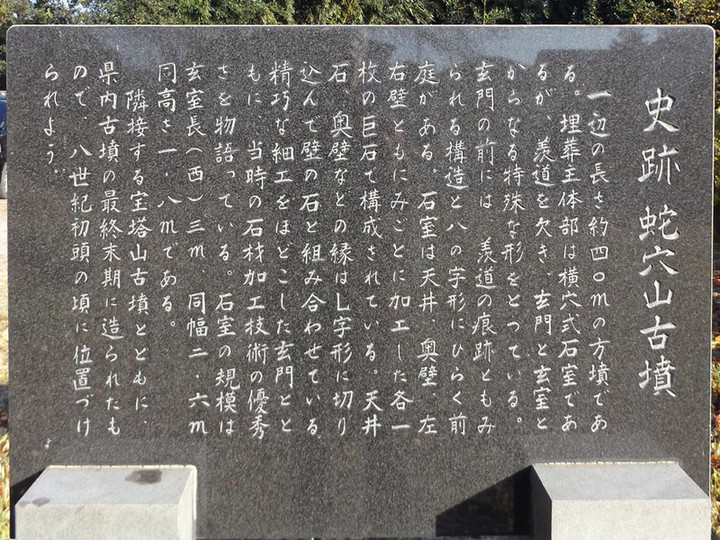 史跡 蛇穴山古墳
一辺の長さ約四〇mの方墳であ
る。埋葬主体部は横穴式石室であ
るが、羨道を欠き、玄門と玄室と
からなる特殊な形をとっている。
玄門の前には、羨道の痕跡ともみ
られる構造と八の字形にひらく前
庭がある。石室は天井、奥壁、左
右壁ともにみごとに加工した各一
枚の巨石で構成されている。天井
石、奥壁などの縁はL字形に切り
込んで壁の石と組み合わせている。
精巧な細工をほどこした玄門とと
もに、当時の石材加工技術の優秀
さを物語っている。石室の規模は
玄室長(西)三m、同幅二・六m
同高さ一・八mである。
隣接する宝塔山古墳とともに、
県内古墳の最終末期に造られたも
ので、八世紀初頭の頃に位置づけ
られよう。